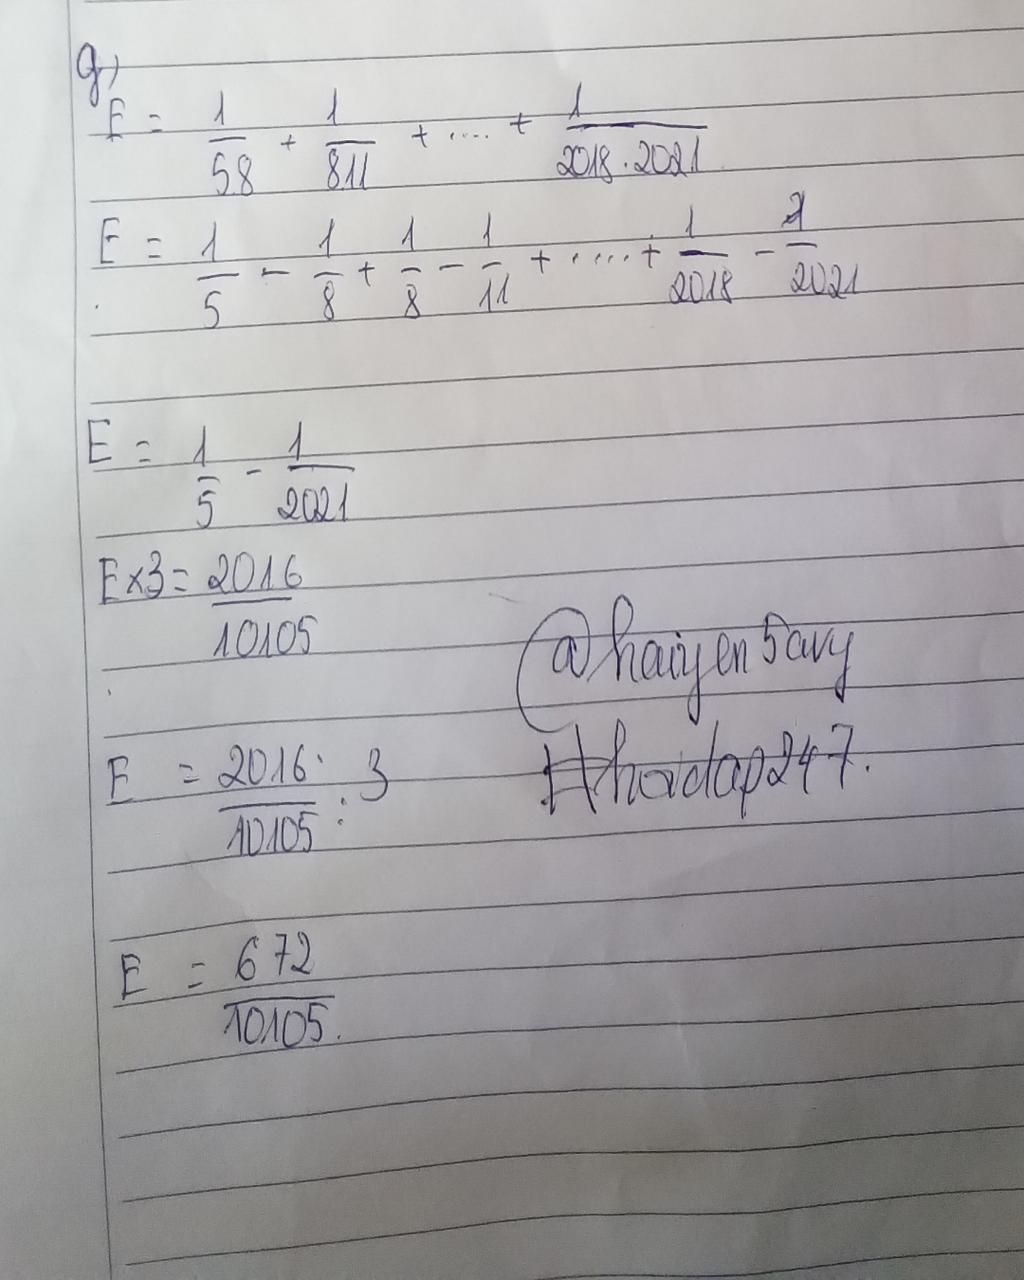 g,
E = 1/58 + 1/811 + .... + 1/2018.2021
E = 1/5 - 1/8 + 1/8 - 1/11 + ..... + 1/2018 - 1/2021
E = 1/5 - 1/2021
E x 3 = 2016/10105
E = 2016/10105 : 3
@haiyen5avy
#hoidap247.
E = 672/10105.